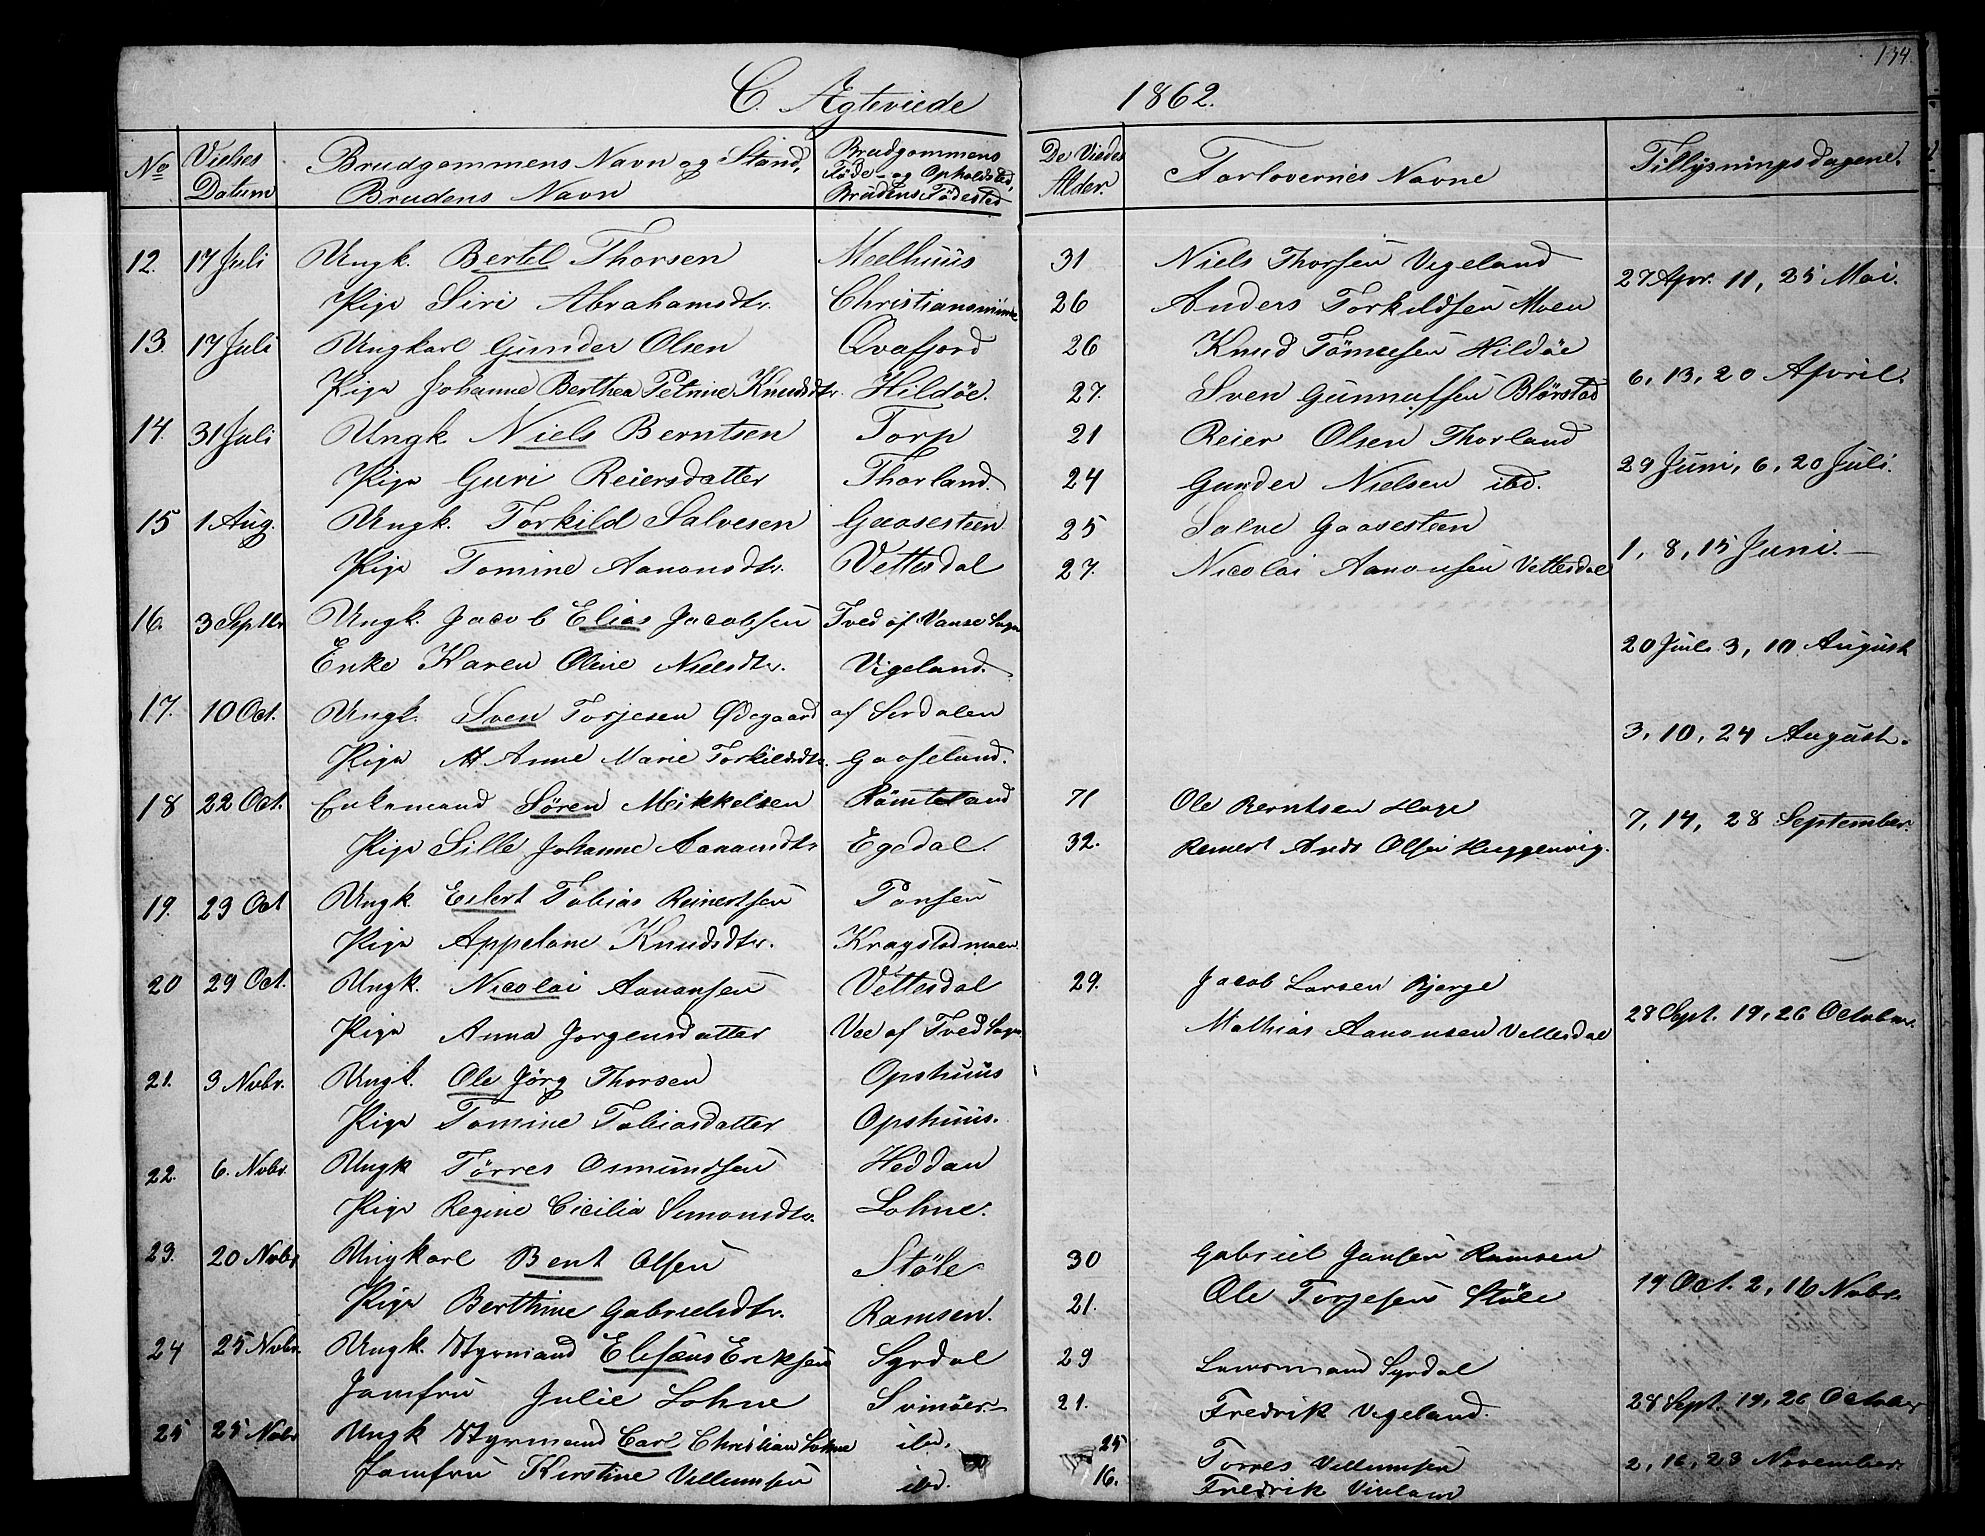 134.
C. Ægteviede 1862.
No Vielses Datum Brudgommens Navn og Stand, Brudens Navn Brudgommens Føde- og Opholdsted, Brudens Fødested De Viedes Alder. Forlovernes Navne Tillysningsdagene.
12. 17 Juli Ungk. Bertel Thorsen Meelhuus 31 Niels Thorsen Vigeland 27 Apr. 11, 25 Mai.
Pige Siri Abrahamsdtr. Christiansminde 26 Anders Torkildsen Moen
13. 17 Juli Ungkarl Gunder Olsen Qvafjord 26 Knud Tömesen Hildöe 6, 13, 20 April.
Pige Johanne Berthea Petrine Knudsdtr. Hildöe. 27. Sven Gunnufsen Blörstad
14. 31 Juli Ungk. Niels Berntsen Torp 21 Reier Olsen Thorland 29 Juni, 6, 20 Juli.
Pige Guri Reiersdatter Thorland. 24 Gunder Nielsen ibd.
15 1 Aug. Ungk. Torkild Salvesen Gaasesteen 25 Salve Gaasesteen 1, 8, 15 Juni.
Pige Tomine Aanonsdtr. Vettesdal 27. Nicolai Aanonsen Vettesdal
16. 3 Septbr Ungk. Jacob Elias Jacobsen Tved af Vanse Sogn 20 Juli 3, 10 August
Enke Karen Oline Nielsdtr. Vigeland.
17. 10 Oct. Ungk. Sven Torjesen Ødegaard af Serdalen 3, 10, 24 August.
Pige Anne Marie Torkildsdtr. Gaaseland.
18 22 Oct. Enkemand Sören Mikkelsen Römteland 71 Ole Berntsen Hage 7, 14, 28 September.
Pige Sille Johanne Aanonsdtr Egedal. 32. Reinert Ands Olsen Huggenvig.
19. 23 Oct Ungk. Eilert Tobias Reinertsen Ponsen
Pige Appelone Knudsdtr. Kragstadmoen.
20 29 Oct. Ungk. Nicolai Aanonsen Vettesdal 29. Jacob Larsen Bjerge 28 Sept. 19, 26 October.
Pige Anna Jorgensdatter Vee af Tved Sogn. Mathias Aanonsen Vettesdal
21. 3 Nvbr. Ungk. Ole Jörg Thorsen Opshuus
Pige Tomine Tobiasdatter Opshuus.
22. 6. Nvbr. Ungk Törres Osmundsen Heddan
Pige Regine Cicilia Simonsdtr. Lohne.
23. 20 Nvbr Ungkarl Bent Olsen Stöle 30 Gabriel Jansen Ramsen 19 Oct. 2, 16 Nvbr.
Pige Berthine Gabrielsdtr. Ramsen. 21. Ole Torjesen Stöle
24 25 Nvbr. Ungk. Styrmand Elisæus Eriksen Syrdal 29 Lensmand Syrdal 28 Sept. 19, 26 October
Jomfru Julie Lohne Svinöer. 21. Fredrik Vigeland.
25 25 Nvbr Ungk Styrmand Carl Christian Lohne ibd. 25 Torres Villumsen 2, 16, 23 November.
Jomfru Kirstine Villumsen ibd. 16. Fredrik